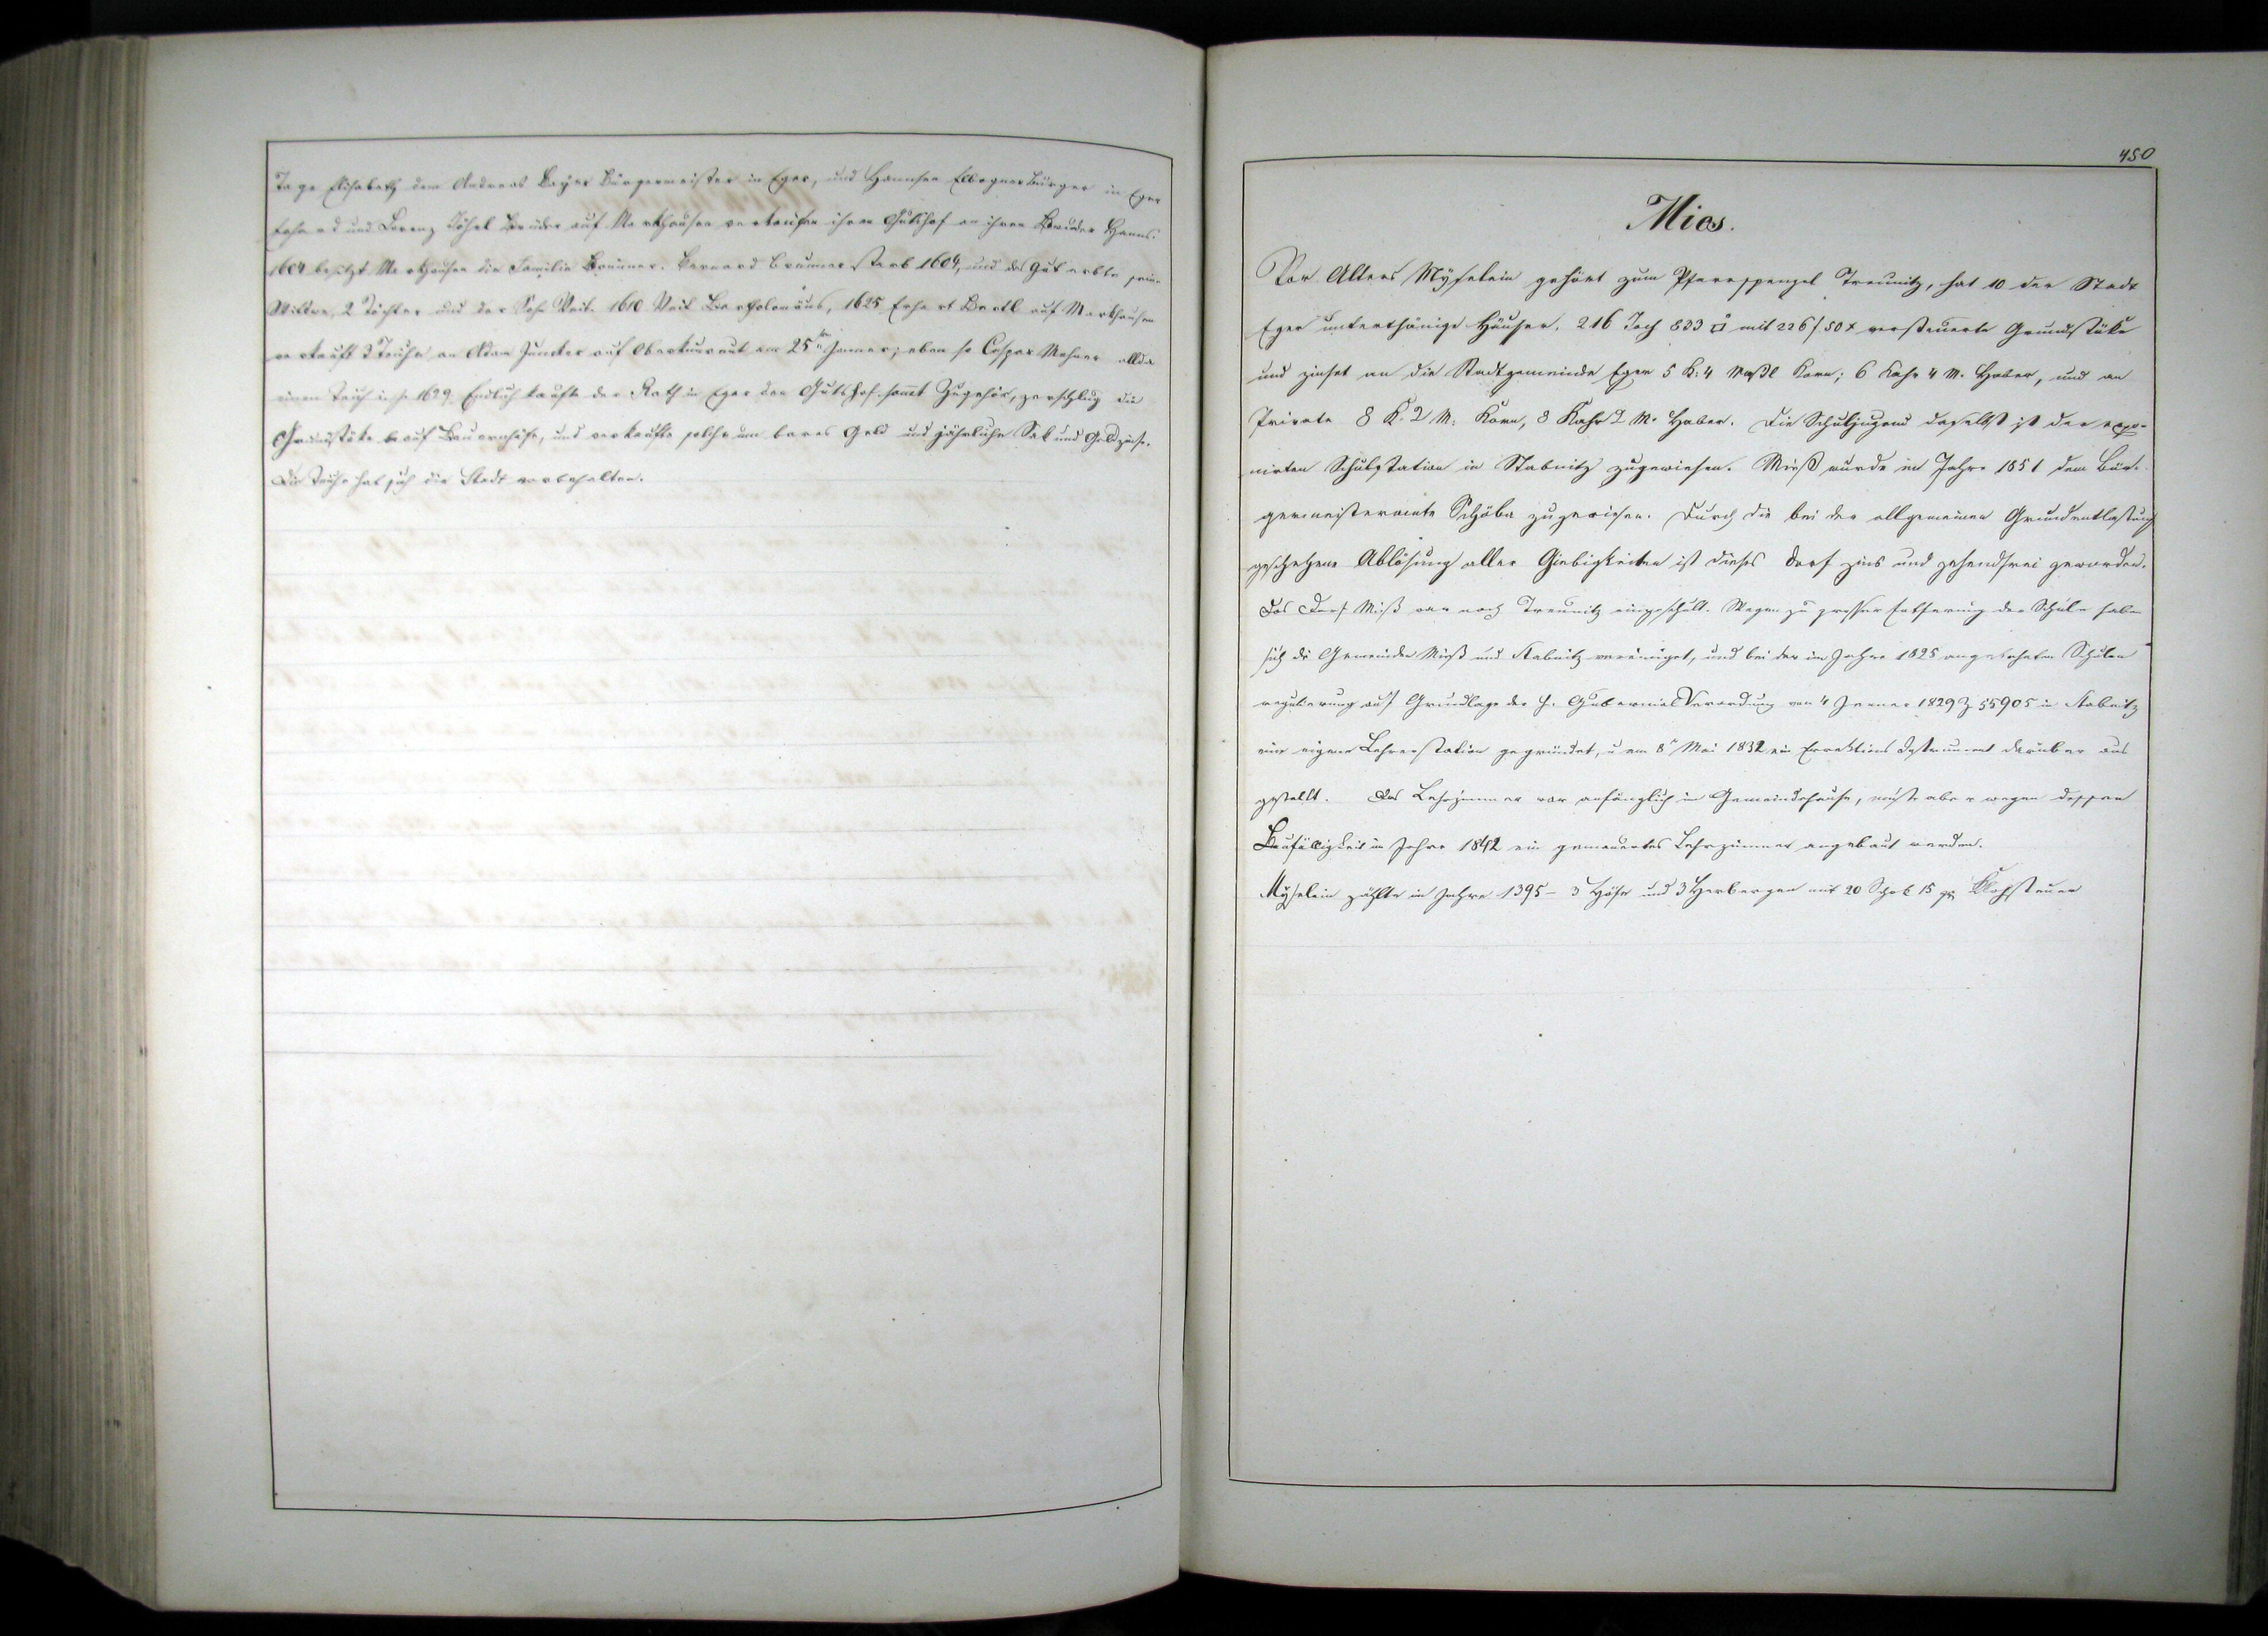 Tage Elisabeth dem Andreas Bayer Bürgermeister in Eger, und Hannsen Elbogner Bürger in Eger
und Lorenz Bruder auf Markhausen verkaufen ihren Gutshof an ihren Bruder Hanns.
1604 besitzt Markhausen die Familie Brunner. Bernard Brunner starb 1604, und das Gut erbte seine
Wittwe, 2 Töchter und der Sohn Veit. 1610 Veit Bartholomäus, 1625 Erhart Bartl auf Markhausen
verkauft 3 Teiche an Adam Juncker auf Oberkunreut am 25ten Jänner; eben so Caspar allda
einen Teich 1629. Endlich kaufte der Rath in Eger den Gutshof samt Zugehör, zerschlug die
Grundstüke auf Bauernhöfe, und verkaufte solche um bares Geld und jährliche Sak und Geldzinse.
Die Teiche hat sich die Stadt vorbehalten.
450
Mies.
Vor Alters Myselein gehört zum Pfarrsprengel Treunitz, hat 10 der Stadt
Eger unterthänige Häuser. 216 Joch 833 □° mit 226 f 50 x versteuerte Grundstüke
und zinset an die Stadtgemeinde Eger 5 K: 4 Maßl Korn; 6 Kahr 4 M. Haber, und an
Private 8 K. 2 M: Korn, 8 Kahr 2 M. Haber. Die Schuljugend daselbst ist der expo-
nirten Schulstation in Stabnitz zugewiesen. Mieß wurde im Jahre 1851 dem Bür-
germeisteramte Schöba zugewiesen. Durch die bei der allgemeinen Grundentlastung
geschehene Ablösung aller Giebigkeiten ist dieses Dorf zins und zehendfrei geworden.
Das Dorf Mieß war nach Treunitz eingeschult. Wegen zu grosser Entfernung der Schule haben
sich die Gemeinden Mieß und Stabnitz vereiniget, und bei der im Jahre 1825 angeordneten Schulen
regulierung auf Grundlage der h. Gubernial Verordnung vom 4 Jenner 1829 Z 55905 in Stabnitz
eine eigene Lehrerstation gegründet, u am 8n Mai 1832 ein Erektions Instrument darüber aus
gestellt. Das Lehrzimmer war anfänglich im Gemeindehause, mußte aber wegen dessen
Baufälligkeit im Jahre 1842 ein gemauertes Lehrzimmer angebaut werden.
Myselein zählte im Jahre 1395 – 3 Höfe und 3 Herbergen mit 20 Schok 15 gr Klohsteuer